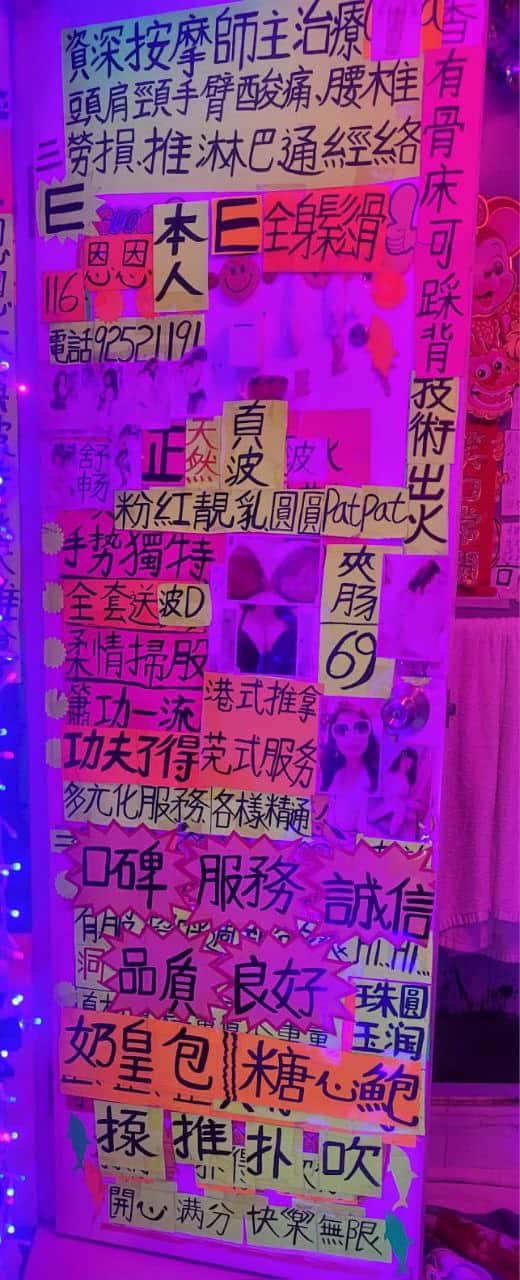 資深按摩師主治療
頭肩頸手臂酸痛、腰椎
勞損、推淋巴通經絡
有骨床可踩背
技術出火
E
本人
E
全身鬆滑
116
恩恩
電話92521191
舒畅
正
天然
真波
波
粉紅靚乳圓圓PatPat
手勢獨特
夾肠
69
全套送波D
柔情掃股
港式推拿
簫功一流
功夫了得
莞式服务
多元化服務.各樣精通
口碑
服務
誠信
洞
品質
良好
珠圓
玉润
奶皇包
糖心鮑
揼推扑吹
開心满分快樂無限